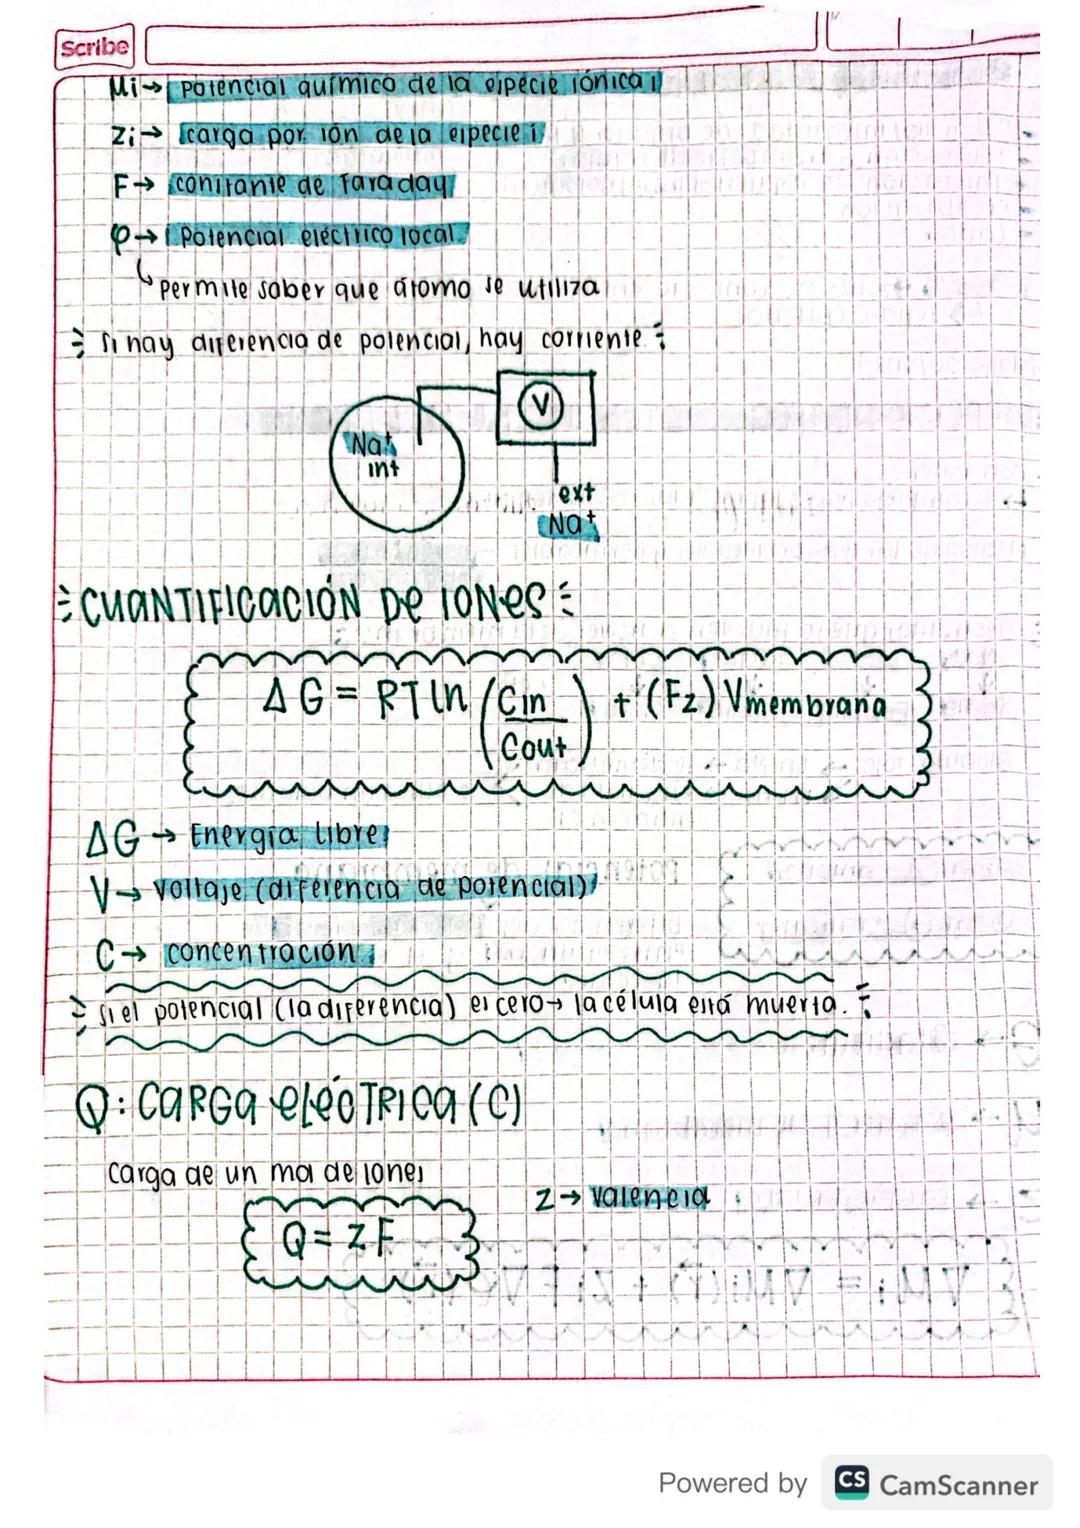 Scribe
Mi→ potencial químico de la especie iónica i
Zi→ carga por ión de la especie i
F→ constante de Faraday
φ→ Potencial eléctrico local
permite saber que átomo se utiliza
Si hay diferencia de potencial, hay corriente.
V
Na+
int
ext
Na+
CUANTIFICACIÓN De IONes
ΔG = RT ln (Cin/Cout) + (Fz) Vmembrana
ΔG → Energía libre
V→ Voltaje (diferencia de potencial)
C→ concentración
Si el potencial (la diferencia) es cero→ la célula está muerta.
Q: CARGA eléCTRICA (C)
Carga de un mol de iones
Z→ valencia
Q = ZF
Powered by CS CamScanner